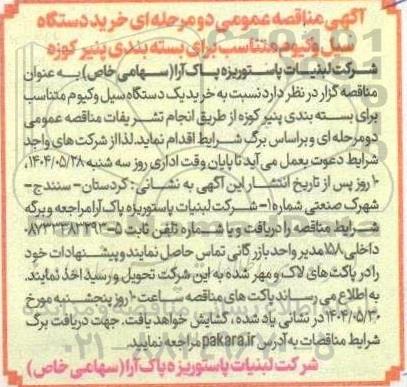 آگهی مناقصه عمومی دو مرحله ای خرید دستگاه
سیل وکیوم متناسب برای بسته بندی پنیر کوزه
شرکت لبنیات پاستوریزه پاک آرا (سهامی خاص) به عنوان
مناقصه گزار در نظر دارد نسبت به خرید یک دستگاه سیل وکیوم متناسب
برای بسته بندی پنیر کوزه از طریق انجام تشریفات مناقصه عمومی
دو مرحله ای و براساس برگ شرایط اقدام نماید. لذا از شرکت های واجد
شرایط دعوت بعمل می آید تا پایان وقت اداری روز سه شنبه ۱۴۰۴/۰۵/۲۸،
۱۰ روز پس از تاریخ انتشار این آگهی به نشانی: کردستان- سنندج-
شهرک صنعتی شماره ۱- شرکت لبنیات پاستوریزه پاک آرا مراجعه و برگه
شرایط مناقصه را دریافت و یا شماره تلفن ثابت ۵-۰۸۷۳۳۳۸۳۳۹۳
داخلی ۱۵۸ مدیر واحد بازرگانی تماس حاصل نمایند و پیشنهادات خود
را در پاکت های لاک و مهر شده به این شرکت تحویل و رسید اخذ نمایند.
به اطلاع می رساند پاکت های مناقصه ساعت ۱۰ روز پنجشنبه مورخ
۱۴۰۴/۰۵/۳۰ در نشانی یاد شده، گشایش خواهد یافت. جهت دریافت برگ
شرایط مناقصات به آدرس pakara.ir مراجعه نمایند.
شرکت لبنیات پاستوریزه پاک آرا (سهامی خاص)